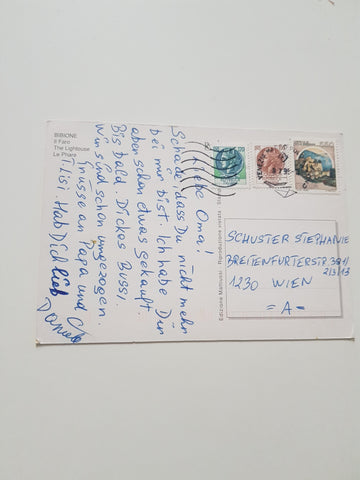 BIBIONE
Il Faro
The Lightouse
Le Phare
Liebe Oma!
Schade, dass Du nicht mehr
bei mir bist. Ich habe Dir
aber schon etwas gekauft.
Bis bald. Dickes Bussi.
Wir sind schon umgezogen.
Grüsse an Papa und
Lisi. Hab Dich lieb
Daniela
Edizione Mattiussi Riproduzione vietata
550
SCHUSTER STEPHANIE
BREITENFURTERSTR.
2/3/13
1230 WIEN
- A -